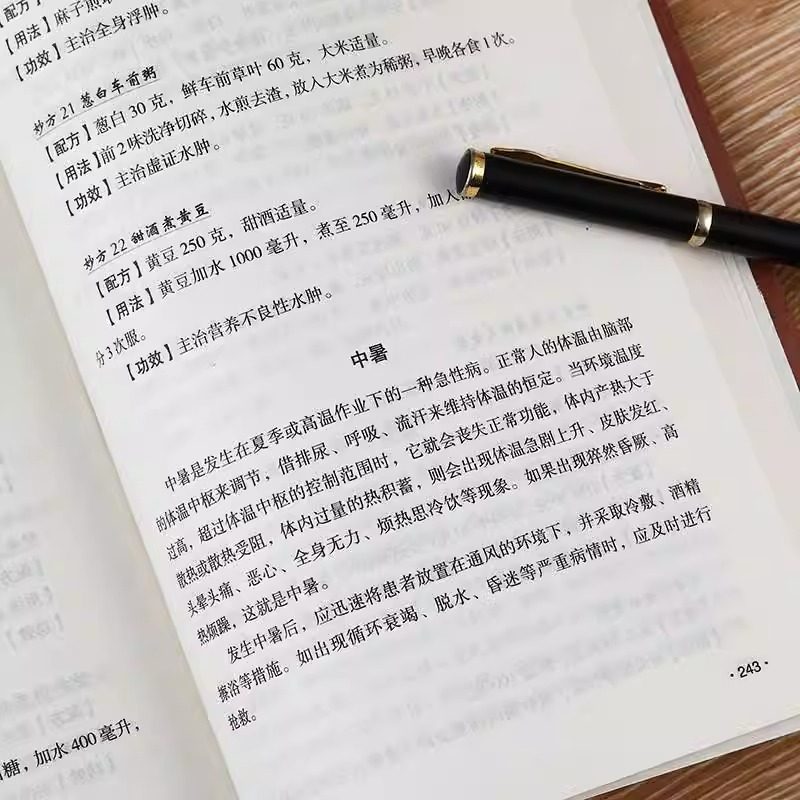 【配方】麻子煎取
【用法】
【功效】主治全身浮肿。
妙方 21 葱白车前粥
【配方】葱白 30 克，鲜车前草叶 60 克，大米适量。
【用法】前 2 味洗净切碎，水煎去渣，放入大米煮为稀粥，早晚各食 1 次。
【功效】主治虚证水肿。
妙方 22 甜酒煮黄豆
【配方】黄豆 250 克，甜酒适量。
【用法】黄豆加水 1000 毫升，煮至 250 毫升，加入
分 3 次服。
【功效】主治营养不良性水肿。
中暑
中暑是发生在夏季或高温作业下的一种急性病。正常人的体温由脑部
的体温中枢来调节，借排尿、呼吸、流汗来维持体温的恒定。当环境温度
过高，超过体温中枢的控制范围时，它就会丧失正常功能，体内产热大于
散热或散热受阻，体内过量的热积蓄，则会出现体温急剧上升、皮肤发红、
头晕头痛、恶心、全身无力、烦热思冷饮等现象。如果出现猝然昏厥、高
热烦躁，这就是中暑。
发生中暑后，应迅速将患者放置在通风的环境下，并采取冷敷、酒精
擦浴等措施。如出现循环衰竭、脱水、昏迷等严重病情时，应及时进行
抢救。
·243·
糖，加水 400 毫升，